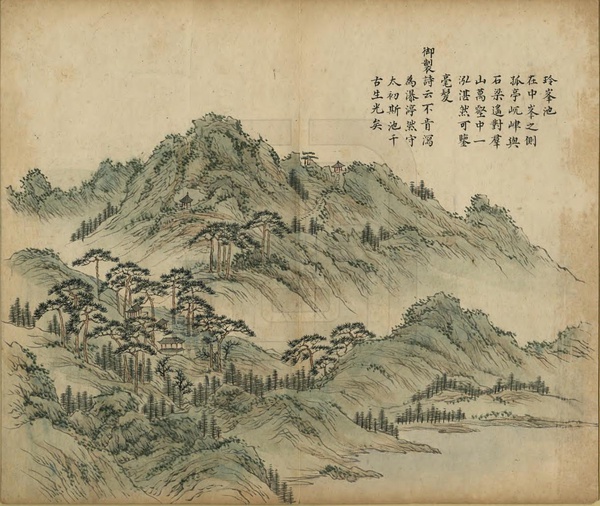 玲峯池
在中峯之側
孤亭屹峙與
石梁遙對羣
山萬壑中一
泓湛然可鑒
毫髮
御製詩云不肯瀉
為瀑渟然守
太初斯池千
古生光矣